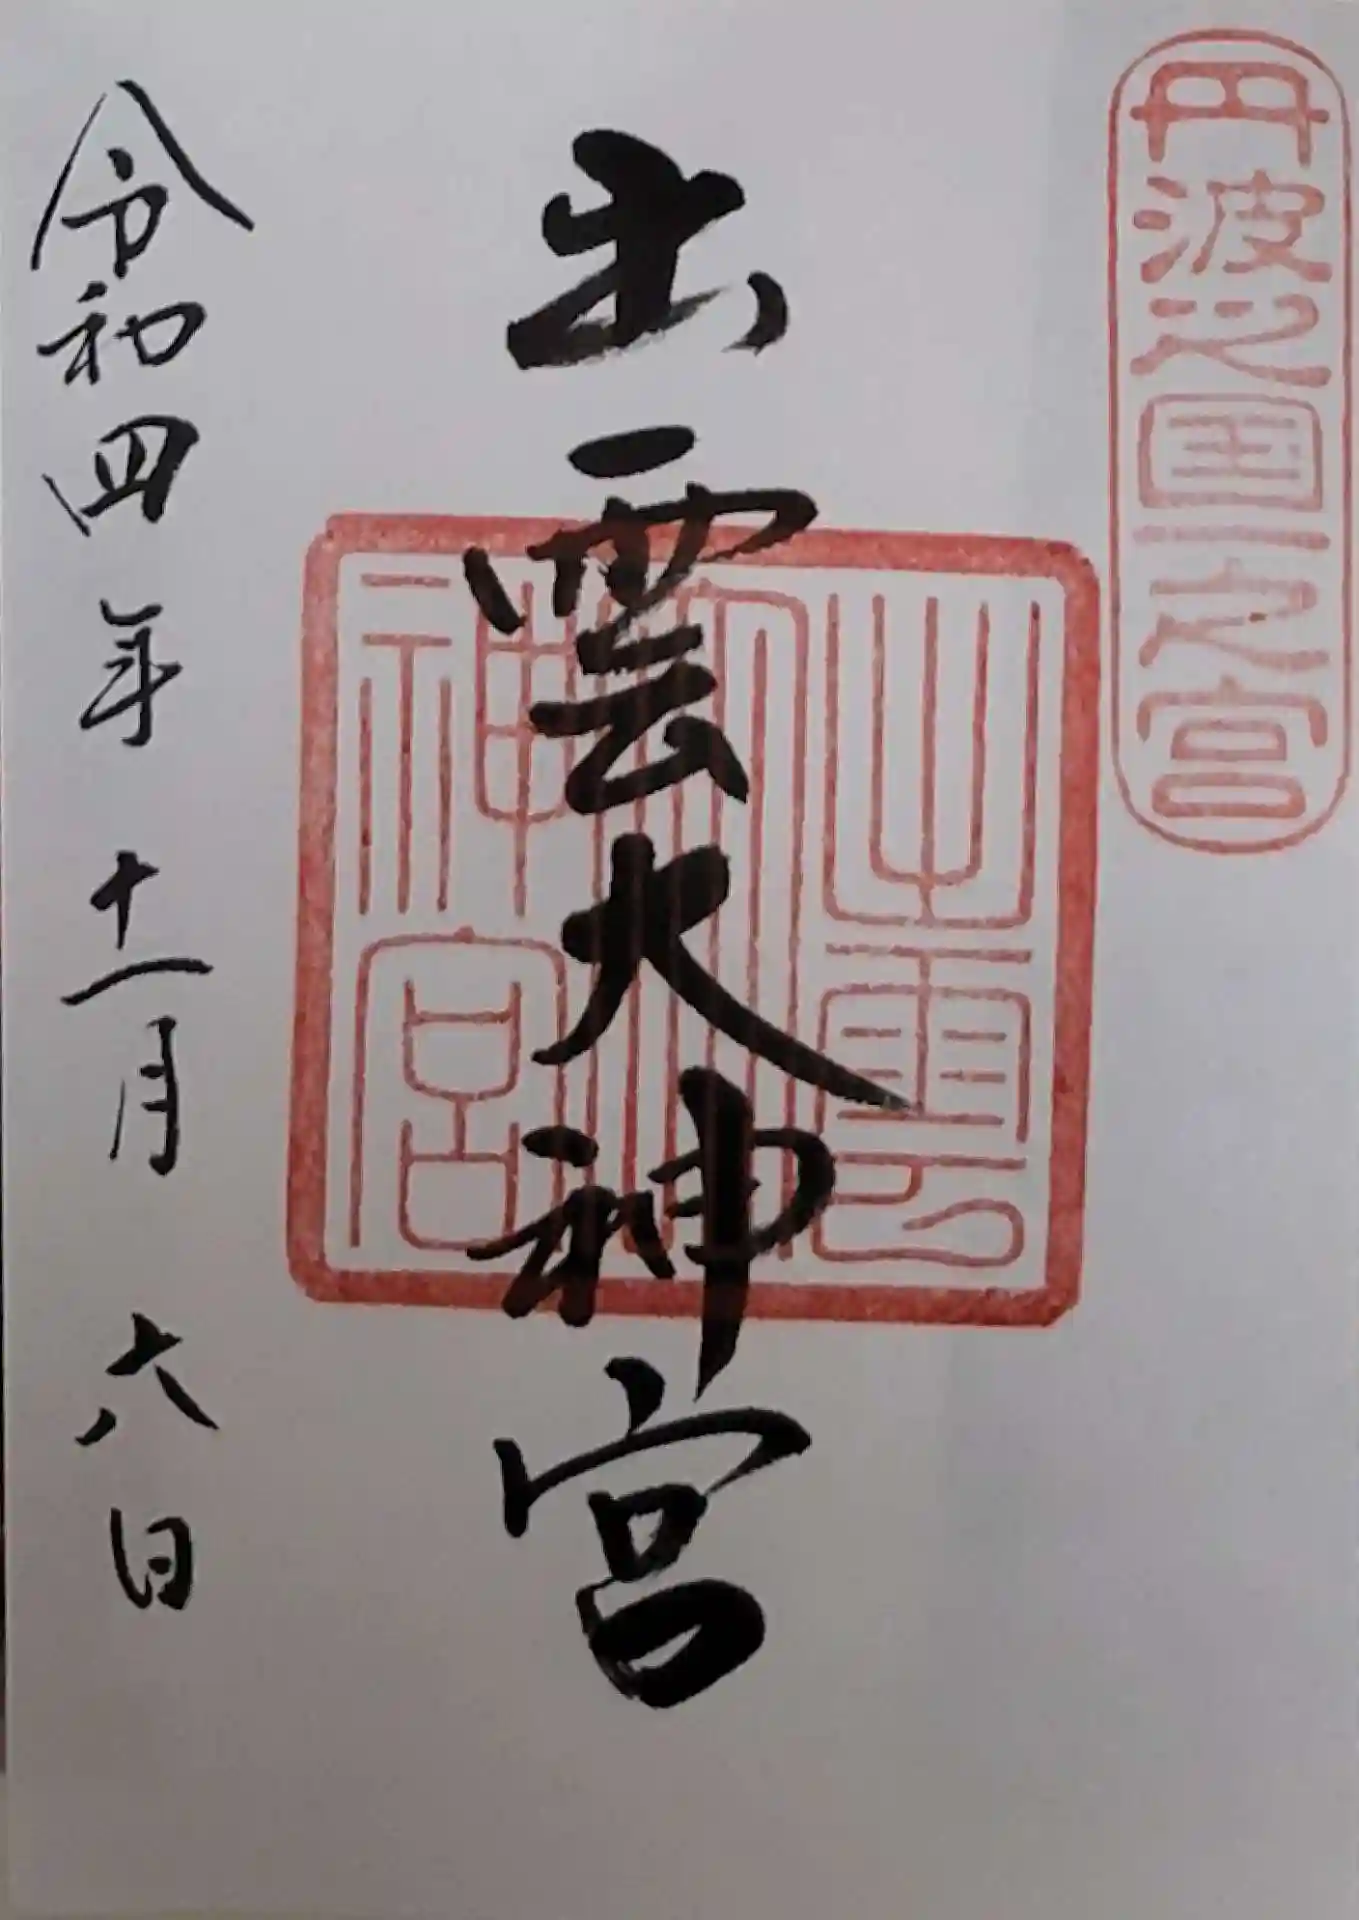 丹波之国一之宮
出雲大神宮
出雲大神宮
令和四年十一月六日